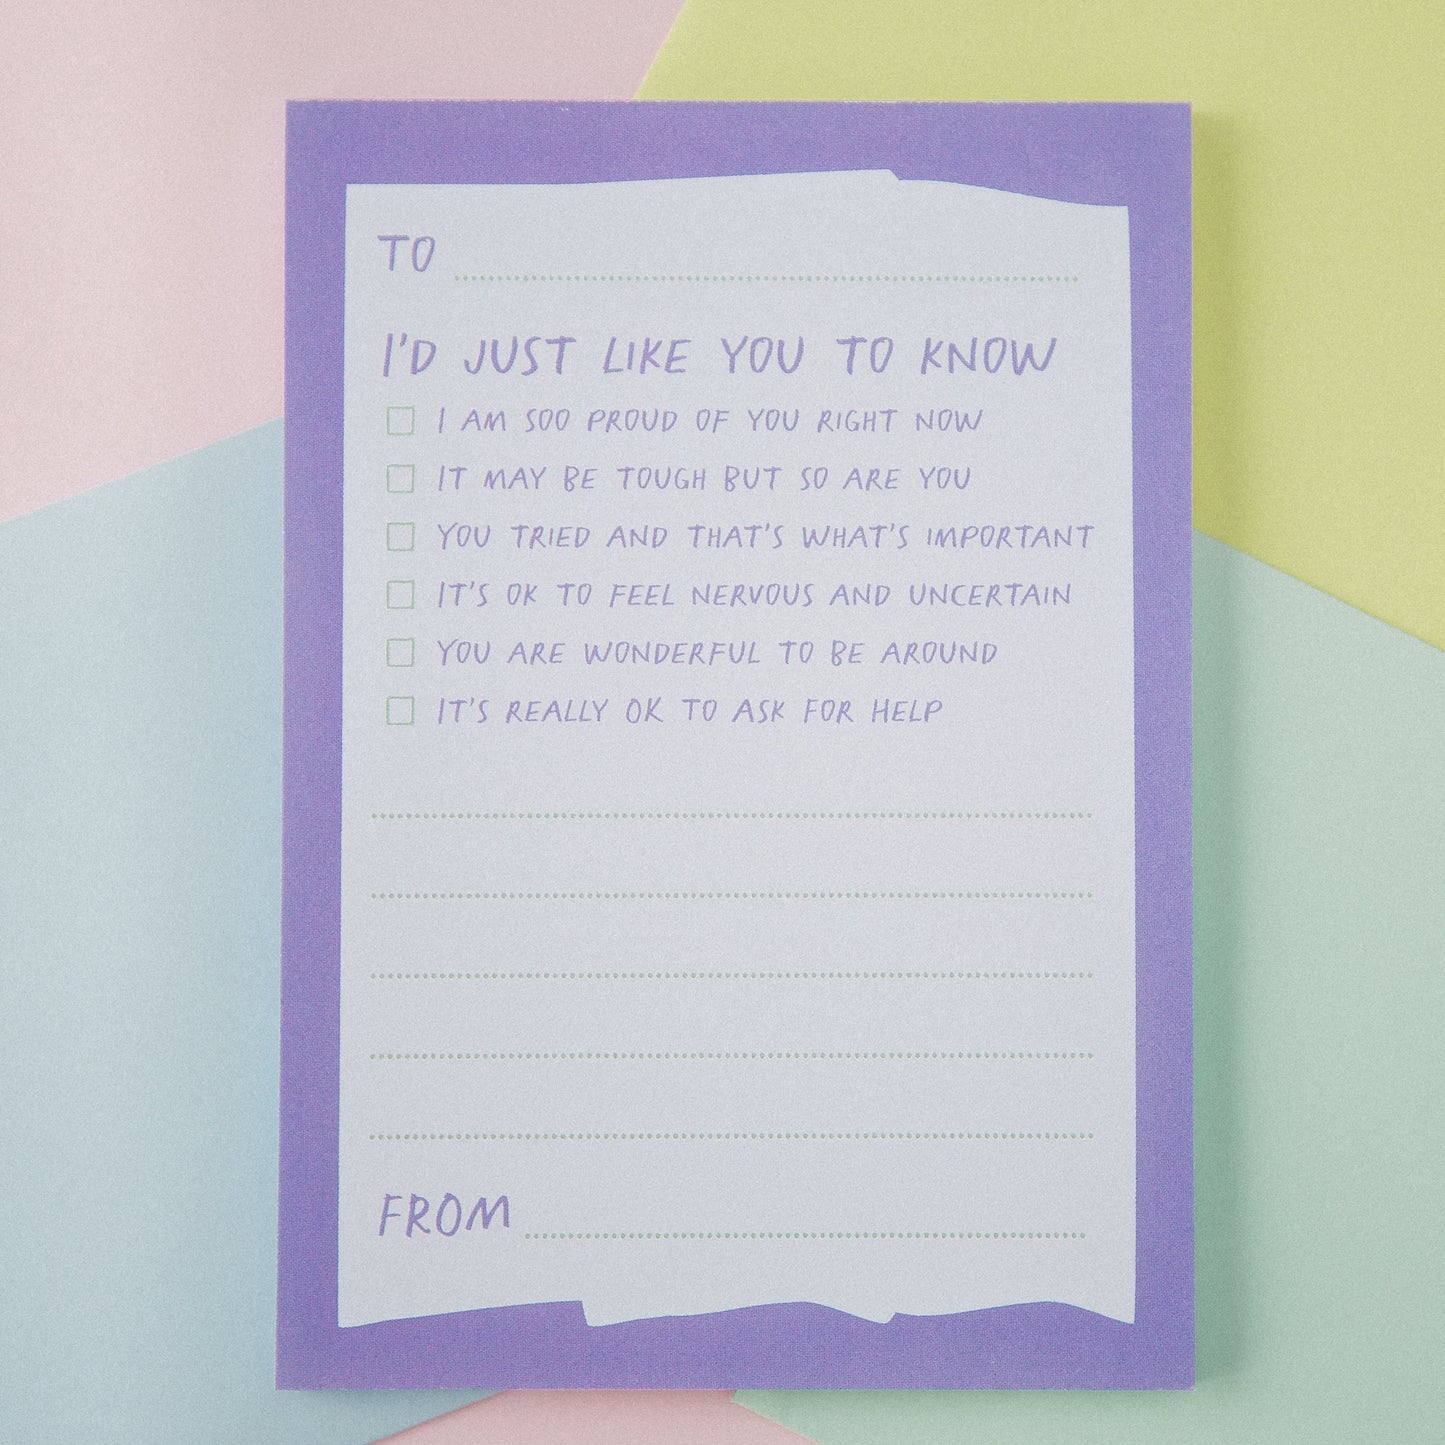 TO
I'D JUST LIKE YOU TO KNOW
I AM SOO PROUD OF YOU RIGHT NOW
IT MAY BE TOUGH BUT SO ARE YOU
YOU TRIED AND THAT'S WHAT'S IMPORTANT
IT'S OK TO FEEL NERVOUS AND UNCERTAIN
YOU ARE WONDERFUL TO BE AROUND
IT'S REALLY OK TO ASK FOR HELP
FROM